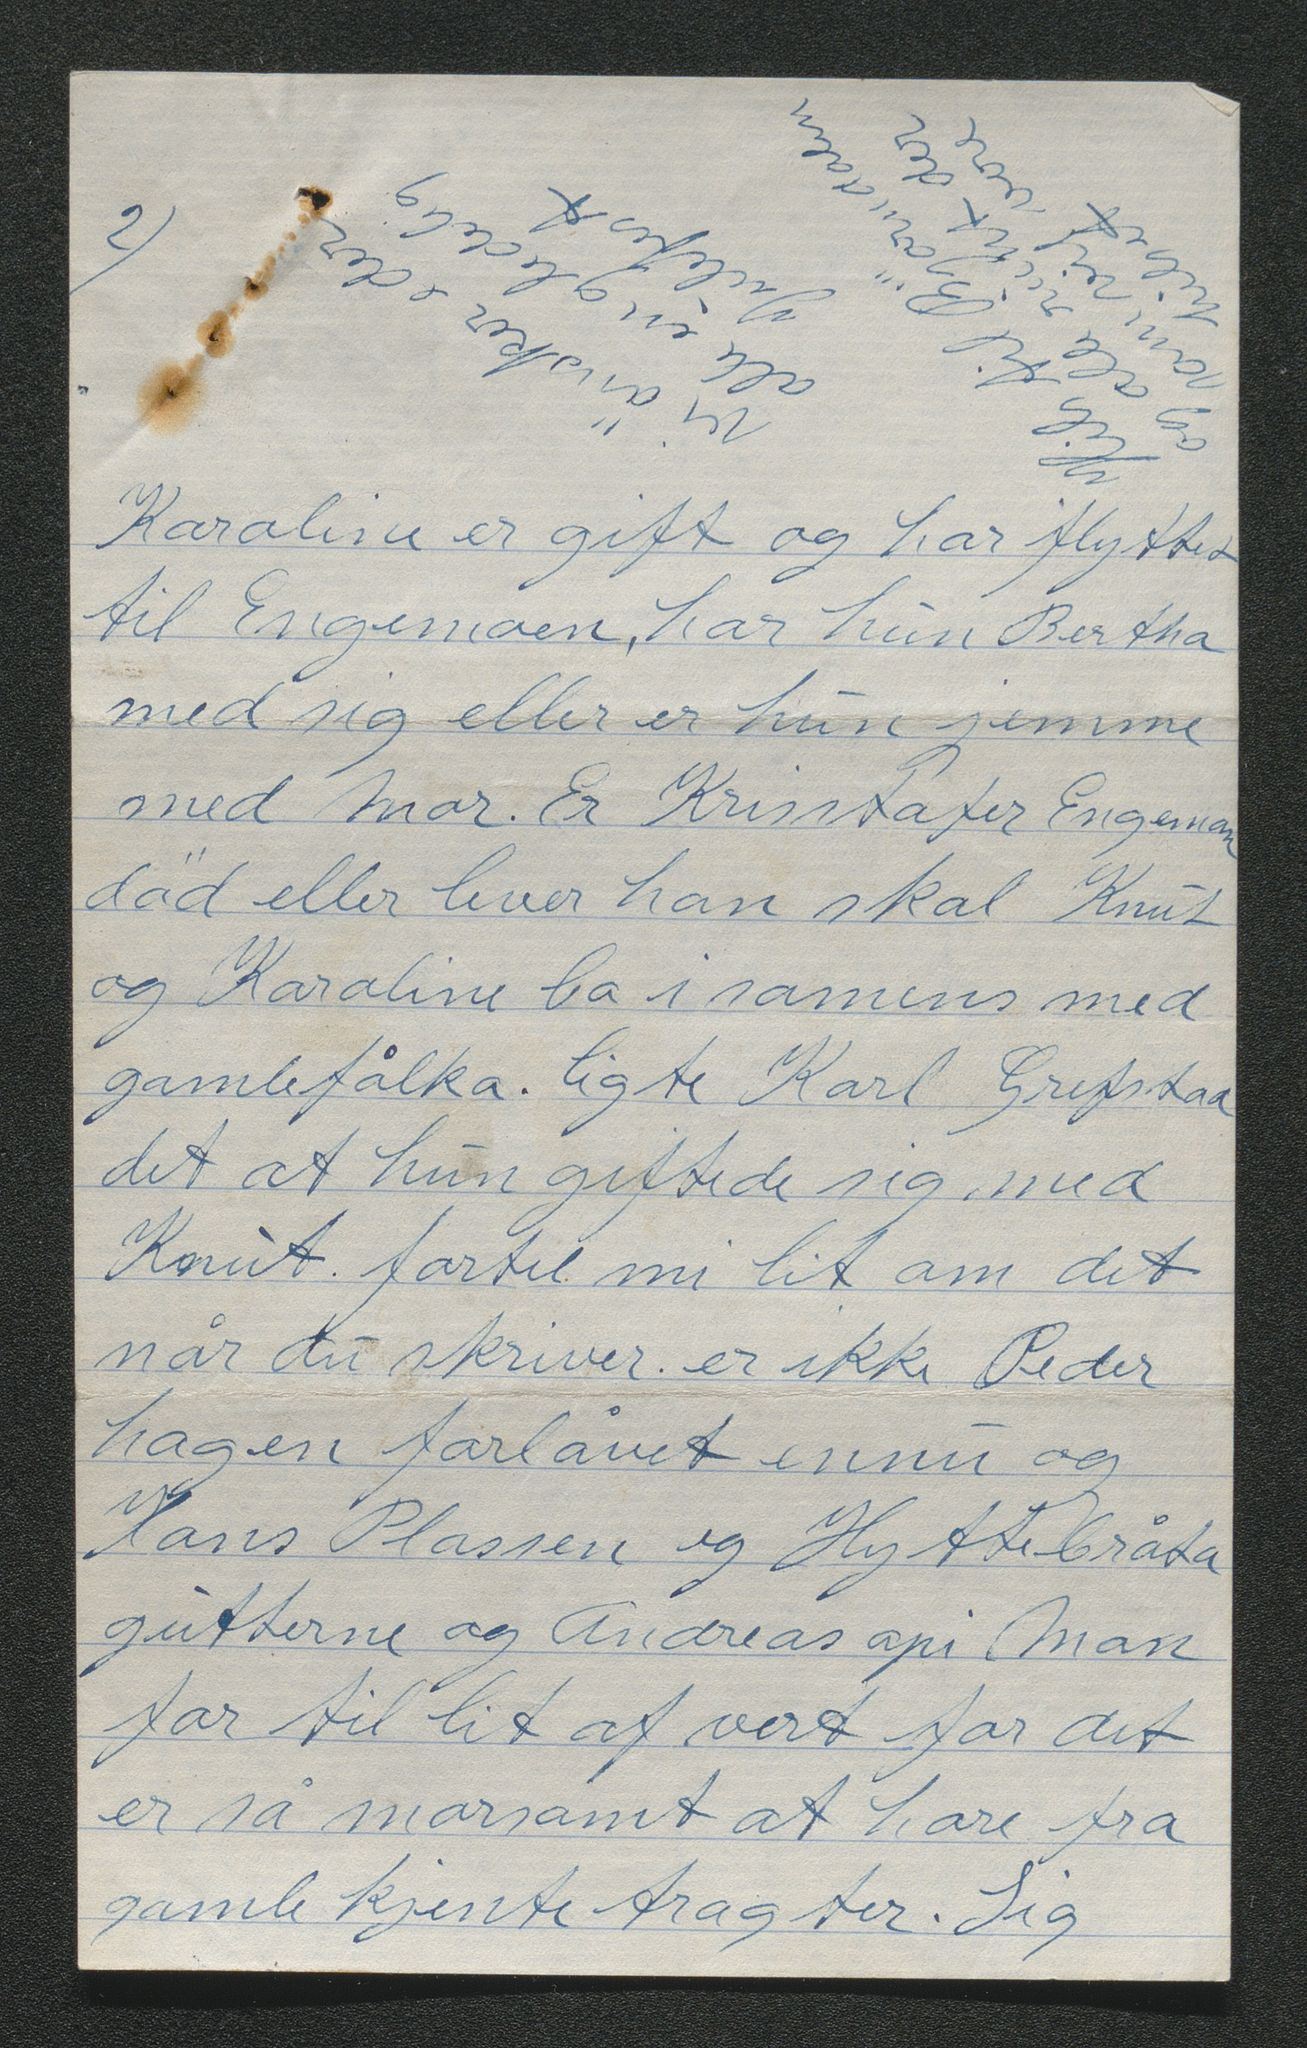 2)
Vi önsker eder
alle en gledelig
Julefest
Hils til Björndalen
og alle rundt der
hilset vore
Karoline er gift og har flyttet
til Engemoen, har hun Bertha
med sig eller er hun jemme
med mor. Er Kristafer Engemon
död eller lever han skal Knut
og Karoline bo i samens med
gamlefålka. ligte Karl Grefstad
det at hun giftede sig med
Knut. fortel mi lit om det
når du skriver. er ikke Peder
hagen forlåvet ennu og
Hans Plassen og Hyttebråta
gutterne og Andreas opi Moan
for til lit af vert for det
er så morsomt at høre fra
gamle kjente tragter. Sig